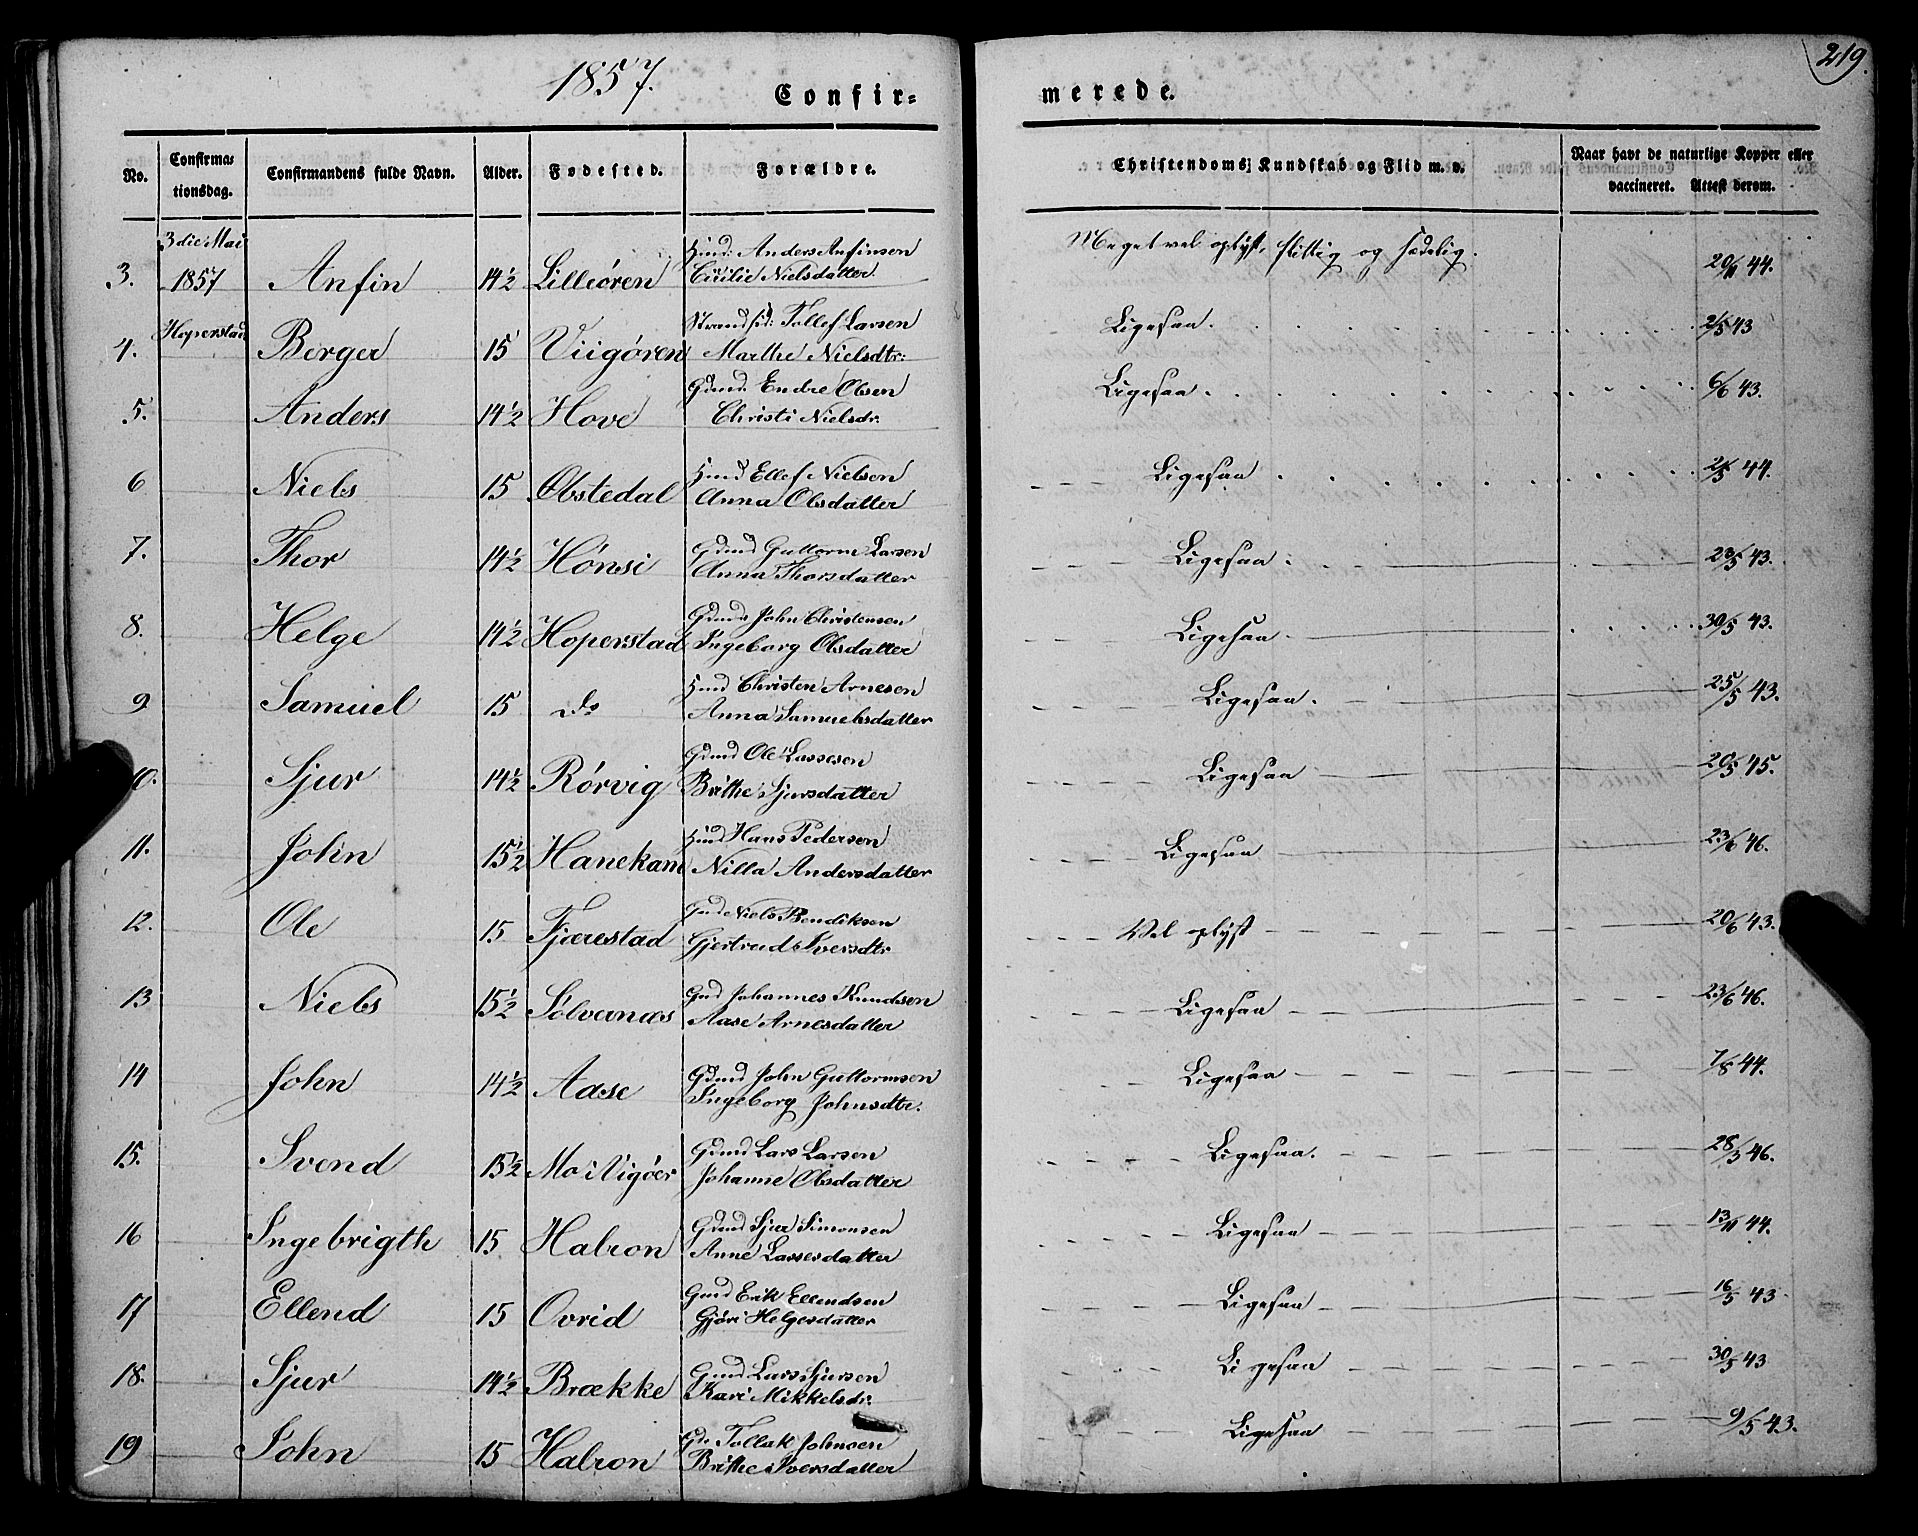 1857.
Confir=
merede.
219.
No.
Confirma=
tionsdag.
Confirmandens fulde Navn.
Alder.
Fødested.
Forældre.
Christendoms Kundskab og Flid m. v.
Naar havt de naturlige Kopper eller
vaccineret. Attest derom.
3die Mai Huusd: Anders Anfinsen Meget vel oplyst, flittig og sædelig.
3. 1857 Anfin 14½ Lilleören Cicilie Nielsdatter. 20/11 44.
Hoperstad Strandsid: Tollef Larsen Ligesaa. 2/5 43
4. Berger 15 Viigören Marthe Nielsdtr:
Gdmd. Endre Olsen Ligesaa. 6/6 43.
5. Anders 14½ Hove Christi Nielsdr.
6 Niels 15 Obstedal Hmd Ellef Nielsen Ligesaa 2/5 44.
Anna Olsdatter
7. Thor 14½ Hönsi Gdmd Guttorm Larsen Ligesaa 23/5 43.
Anna Thorsdatter
8. Helge 14½ Hoperstad Gdmd John Christensen Ligesaa. 30/5 43.
Ingeborg Olsdatter
9 Samuel 15 do Hmd Christen Arnesen Ligesaa. 25/5 43.
Anna Samuelsdatter
10. Sjur 14½ Rörvig Gdmd Ole Lassesen Ligesaa 20/5 45.
Brithe Sjursdatter
11. John 15½ Hanekam Hmd Hans Pedersen Ligesaa 23/6 46.
Nilla Andersdatter
12. Ole 15 Fjærestad Gmd Niels Bendiksen Vel oplyst 20/6 43.
Gjertrud Iversdtr
13 Niels 15½ Solvernæs Gmd Johannes Knudsen Ligesaa 23/6 46.
Aase Arnesdatter
14 John 14½ Aase Gdmd John Guttormsen Ligesaa 7/8 44.
Ingeborg Johnsdtr.
15. Svend 15½ Mo i Vigöer Gdmd Lars Larsen Ligesaa. 28/3 46.
Johanne Olsdatter
16 Ingebrigth 15 Halron Gdmd Sjur Simonsen Ligesaa 13/11 44.
Anne Lassesdatter
17 Ellend 15 Ovrid Gmd Erik Ellendsen Ligesaa 16/5 43
Gjöri Helgesdatter
18. Sjur 14½ Brække Gmd Lars Sjursen Ligesaa 30/5 43
Kari Mikkelsdr.
19 John 15 Halron Gdr Tollak Johnsen Ligesaa 9/5 43.
Brithe Iversdatter